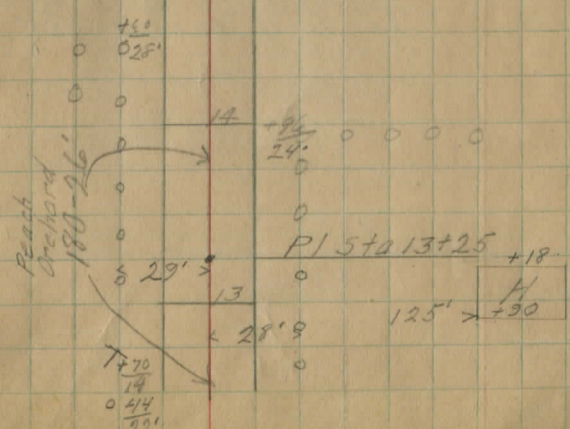 +60
28'
14
+96
24'
Peach
Orchard
180-26'
Pl Sta 13+25
29'
+18
H
+90
125'
13
28'
+70
19
+44